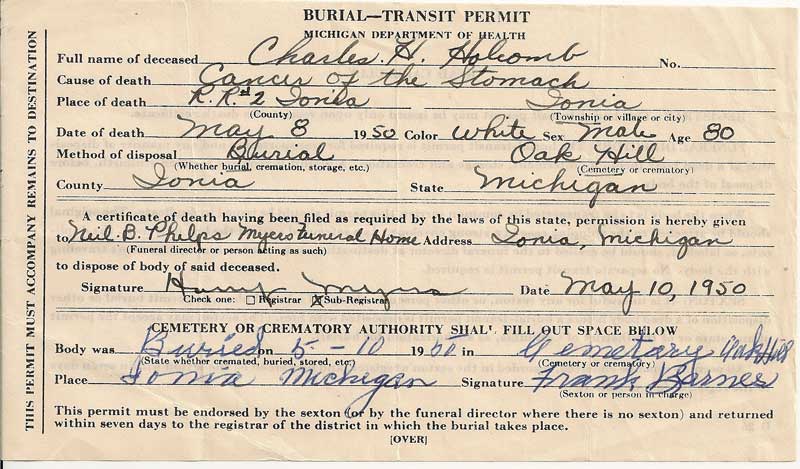 BURIAL—TRANSIT PERMIT
MICHIGAN DEPARTMENT OF HEALTH
Full name of deceased Charles. H. Holcomb No.
Cause of death Cancer of the Stomach
Place of death R.R#2 Ionia Ionia
(County) (Township or village or city)
Date of death May 8 1950 Color White Sex Male Age 80
Method of disposal Burial Oak Hill
(Whether burial, cremation, storage, etc.) (Cemetery or crematory)
County Ionia State Michigan
A certificate of death having been filed as required by the laws of this state, permission is hereby given
to Neil. B. Phelps Myers Funeral Home Address Ionia, Michigan
(Funeral director or person acting as such)
to dispose of body of said deceased.
Signature Harry Myers Date May 10, 1950
Check one: Registrar X Sub-Registrar
CEMETERY OR CREMATORY AUTHORITY SHAL' FILL OUT SPACE BELOW
Body was Buried on 5-10 1950 in Cemetary Oak Hill
(State whether cremated, buried, stored, etc.) (Cemetery or crematory)
Place Ionia Michigan Signature Frank Barnes
(Sexton or person in charge)
This permit must be endorsed by the sexton (or by the funeral director where there is no sexton) and returned
within seven days to the registrar of the district in which the burial takes place.
[OVER]
THIS PERMIT MUST ACCOMPANY REMAINS TO DESTINATION